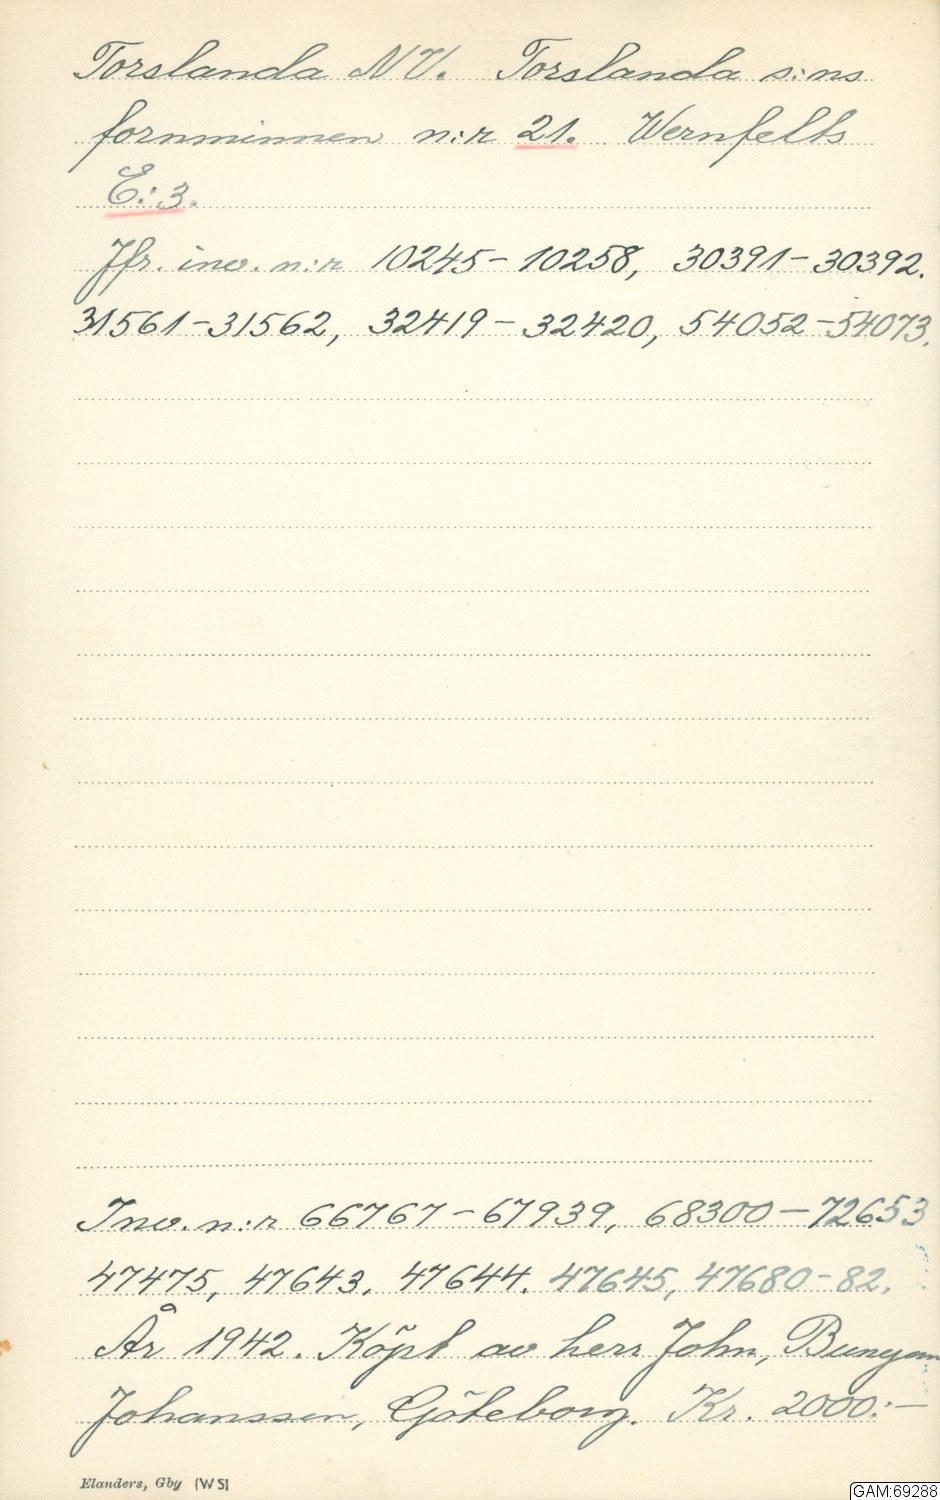 Torslanda N V. Torslanda s:ns
fornminnen n:r 21. Wernfelts
E:3.
Jfr. inv. n:r 10245–10258, 30391–30392.
31561–31562, 32419–32420, 54052–54073.
Inv. n:r 66767–67939, 68300–72653
47475, 47643. 47644. 47645, 47680–82.
År 1942. Köpt av herr John, Bunyan
Johansson, Göteborg. Kr. 2000:–
Elanders, Gby (W5)
GAM:69288